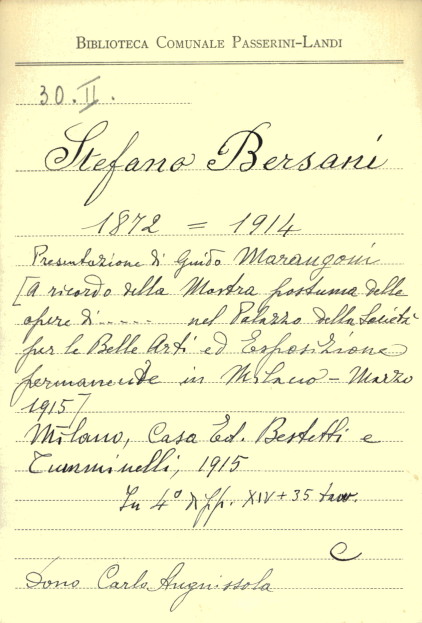 BIBLIOTECA COMUNALE PASSERINI-LANDI
30.II.
Stefano Bersani
1872 = 1914
Presentazione di Guido Marangoni
[A ricordo della Mostra postuma delle
opere di..... nel Palazzo della Società
per le Belle Arti ed Esposizione
permanente in Milano - Marzo
1915]
Milano, Casa Ed. Bestetti e
Tumminelli, 1915
In 4° di pp. XIV + 35 tav.
C
Dono Carlo Anguissola